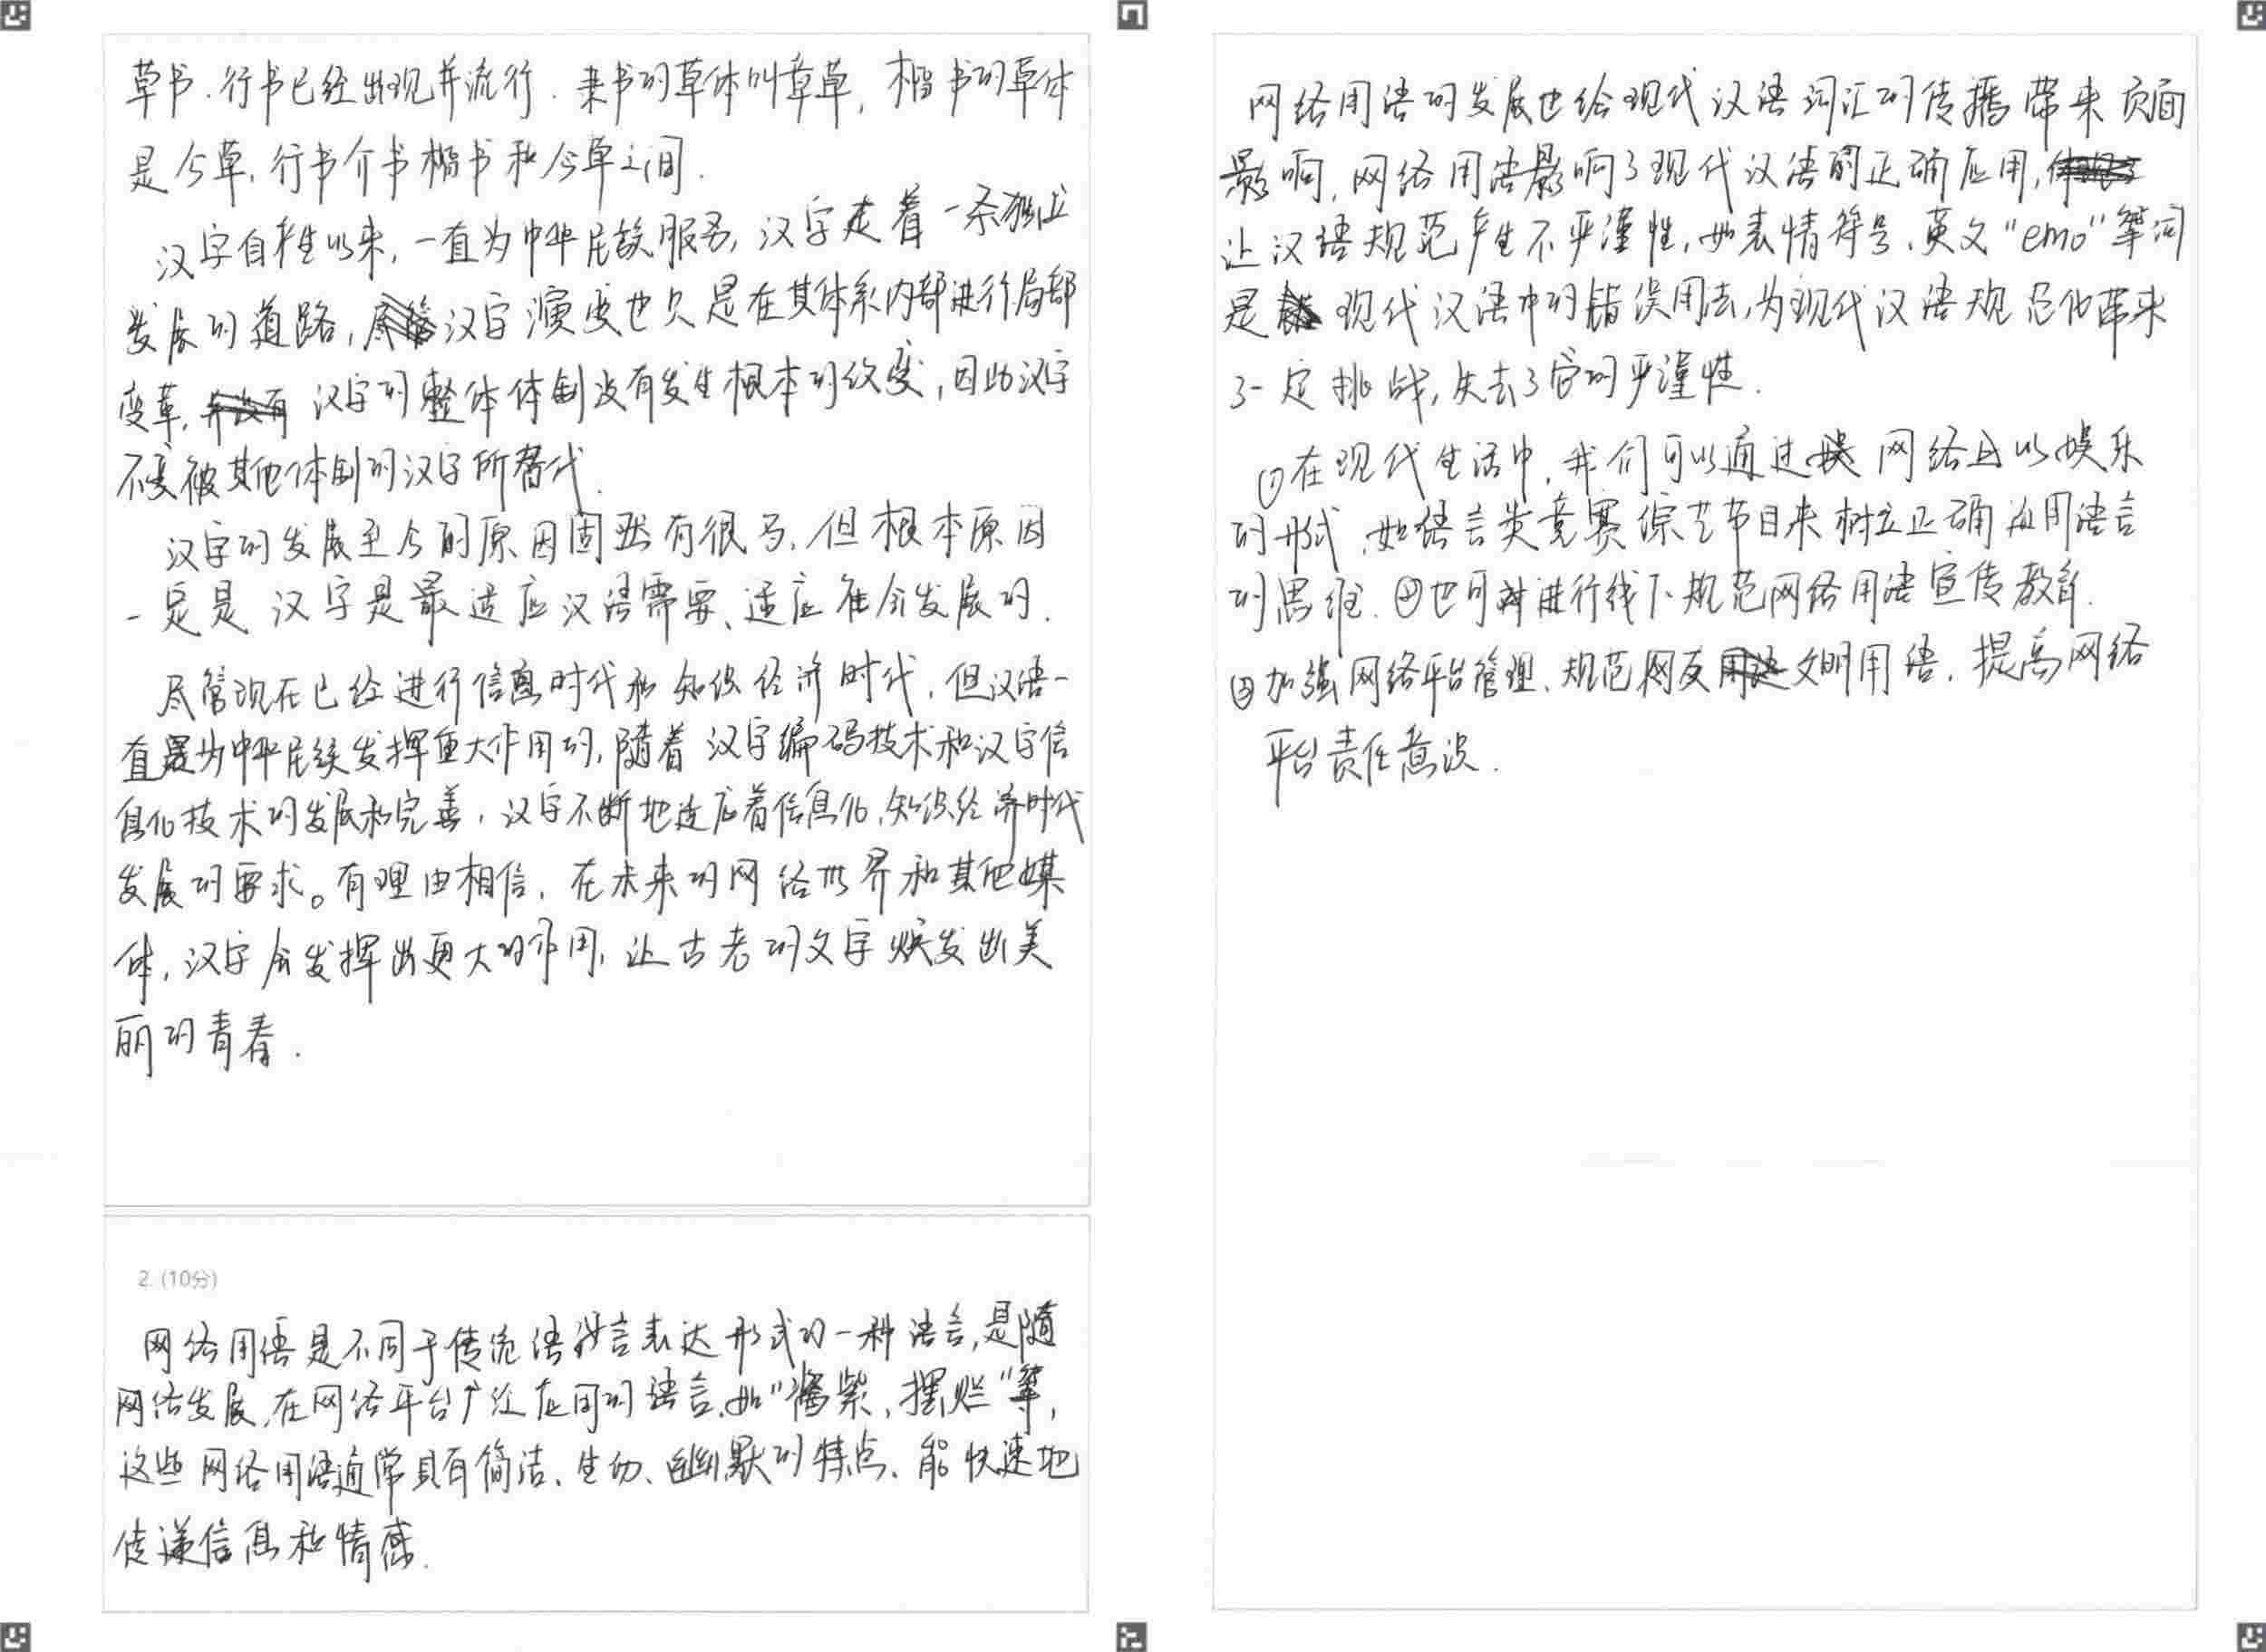 草书、行书已经出现并流行. 隶书的草体叫章草, 楷书的草体
是今草, 行书介书楷书和今草之间.
汉字自产生以来, 一直为中华民族服务, 汉字走着一条独立
发展的道路, 汉字演变也只是在其体系内部进行局部
变革, 汉字的整体体制没有发生根本的改变, 因此汉字
不变被其他体制的汉字所替代.
汉字的发展至今的原因固然有很多, 但根本原因
一定是 汉字是最适应汉语需要、适应社会发展的.
尽管现在已经进行信息时代和知识经济时代, 但汉语一
直是为中华民族发挥重大作用的, 随着汉字编码技术和汉字信
息化技术的发展和完善, 汉字不断地适应着信息化, 知识经济时代
发展的要求。有理由相信, 在未来的网络世界和其他媒
体, 汉字会发挥出更大的作用, 让古老的文字焕发出美
丽的青春.
2. (10分)
网络用语是不同于传统语言表达形式的一种语言, 是随
网络发展, 在网络平台广泛应用的语言, 如"酱紫, 摆烂"等,
这些网络用语通常具有简洁、生动、幽默的特点, 能快速地
传递信息和情感.
网络用语的发展也给现代汉语词汇的传播带来负面
影响, 网络用语影响了现代汉语的正确应用,
让汉语规范产生不严谨性, 如表情符号、英文"emo"等词
是 现代汉语中的错误用法, 为现代汉语规范化带来
了一定挑战, 失去了它的严谨性.
①在现代生活中, 我们可以通过 网络且以娱乐
的形式, 如语言类竞赛综艺节目来树立正确应用语言
的思维. ②也可进行线下规范网络用语宣传教育.
③加强网络平台管理、规范网友文明用语, 提高网络
平台责任意识.